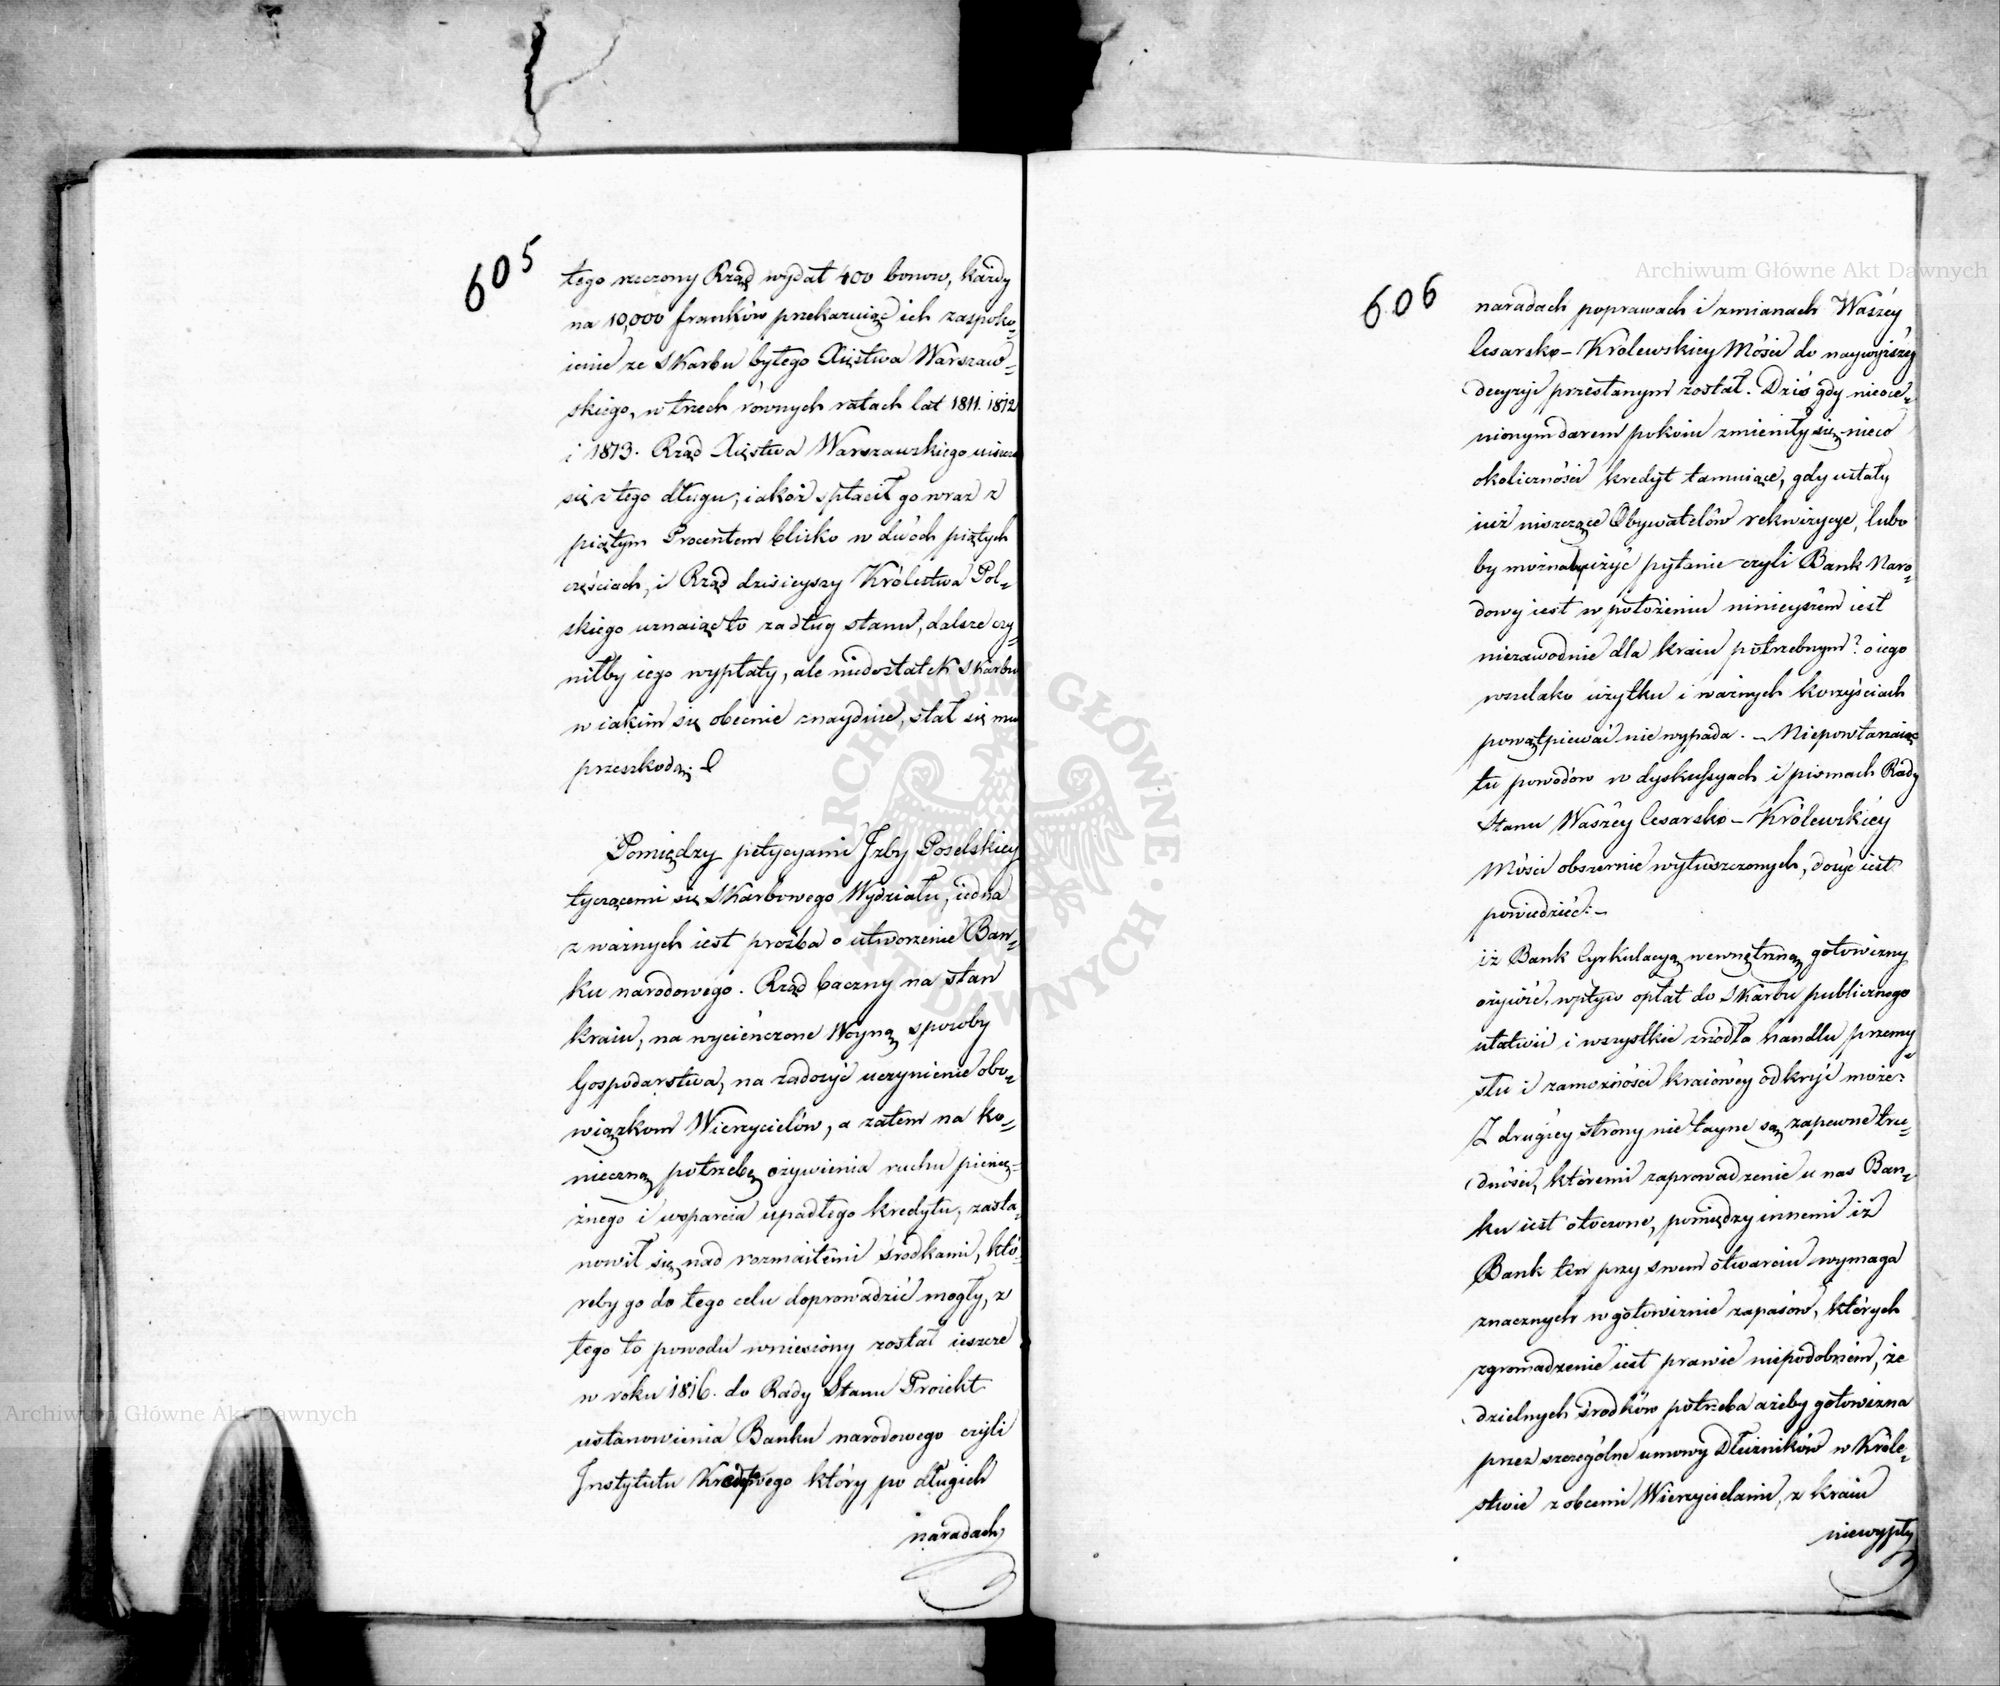 605
tego rzeczony Rząd wydał 400 bonow, każdy
na 10,000 franków przekazuiąc ich zaspoko-
ienie ze Skarbu byłego Xięstwa Warszaw-
skiego, w trzech równych ratach lat 1811. 1812
i 1813. Rząd Xięstwa Warszawskiego
się z tego długu, iakoż spłacił go wraz z
piątym Procentem blisko w dwóch piątych
częściach, i Rząd dzisieyszy Królestwa Pol-
skiego uznaiąc to za dług stanu, dalsze czy-
niłby iego wypłaty, ale niedostatek Skarbu
w iakim się obecnie znayduie, stał się mu
przeszkodą.
Pomiędzy petycyami Izby Poselskiey
tyczącemi się Skarbowego Wydziału, iedna
z ważnych iest prośba o utworzenie Ban-
ku narodowego. Rząd baczny na stan
kraiu, na wycieńczone Woyną sposoby
Gospodarstwa, na zadosyć uczynienie obo-
wiązkom Wierzycielów, a zatem na ko-
nieczną potrzebę ożywienia ruchu pienię-
żnego i wsparcia upadłego kredytu, zasta-
nowił się nad rozmaitemi środkami, któ-
reby go do tego celu doprowadzić mogły, z
tego to powodu wniesiony został ieszcze
w roku 1816. do Rady Stanu Proiekt
ustanowienia Banku narodowego czyli
Instytutu Kredytowego który po długich
naradach
606
naradach poprawach i zmianach Waszéy
Cesarsko-Krolewskiey Mości do naywyższéy
decyzyi przesłanym został. Dziś gdy nieoce-
nionym darem pokoiu zmieniły się nieco
okoliczności kredyt tamuiące, gdy ustały
iuż niszczące Obywatelów rekwizycye, lubo
by można użyć pytanie czyli Bank Naro-
dowy iest w położeniu ninieyszém iest
niezawodnie dla kraiu potrzebnym? o iego
wszelako użytku i ważnych korzyściach
powątpiewać nie wypada. - Niepowtarzaiąc
tu powodów w dyskussyach i pismach Rady
Stanu Waszéy Cesarsko-Królewskiéy
Mości obszernie wyłuszczonych, dosyć iest
powiedziéć: -
iż Bank Cyrkulacyą wewnętrzną gotowizny
ożywić, wpływ opłat do Skarbu publicznego
ułatwić i wszystkie źródła handlu przemy-
słu i zamożności kraiowéy odkryć może.
Z drugiéy strony nie tayne są zapewne tru-
dności, któremi zaprowadzenie u nas Ban-
ku iest otoczone, pomiędzy innemi iż
Bank ten przy swem otwarciu wymaga
znacznych w gotowiznie zapasów, których
zgromadzenie iest prawie niepodobném, że
dzielnych środków potrzeba ażeby gotowizna
przez szczególne umowy Dłużników w Króle-
stwie z obcemi Wierzycielami, z kraiu
niewypły
Archiwum Główne Akt Dawnych
Archiwum Główne Akt Dawnych
ARCHIWUM GŁÓWNE AKT DAWNYCH